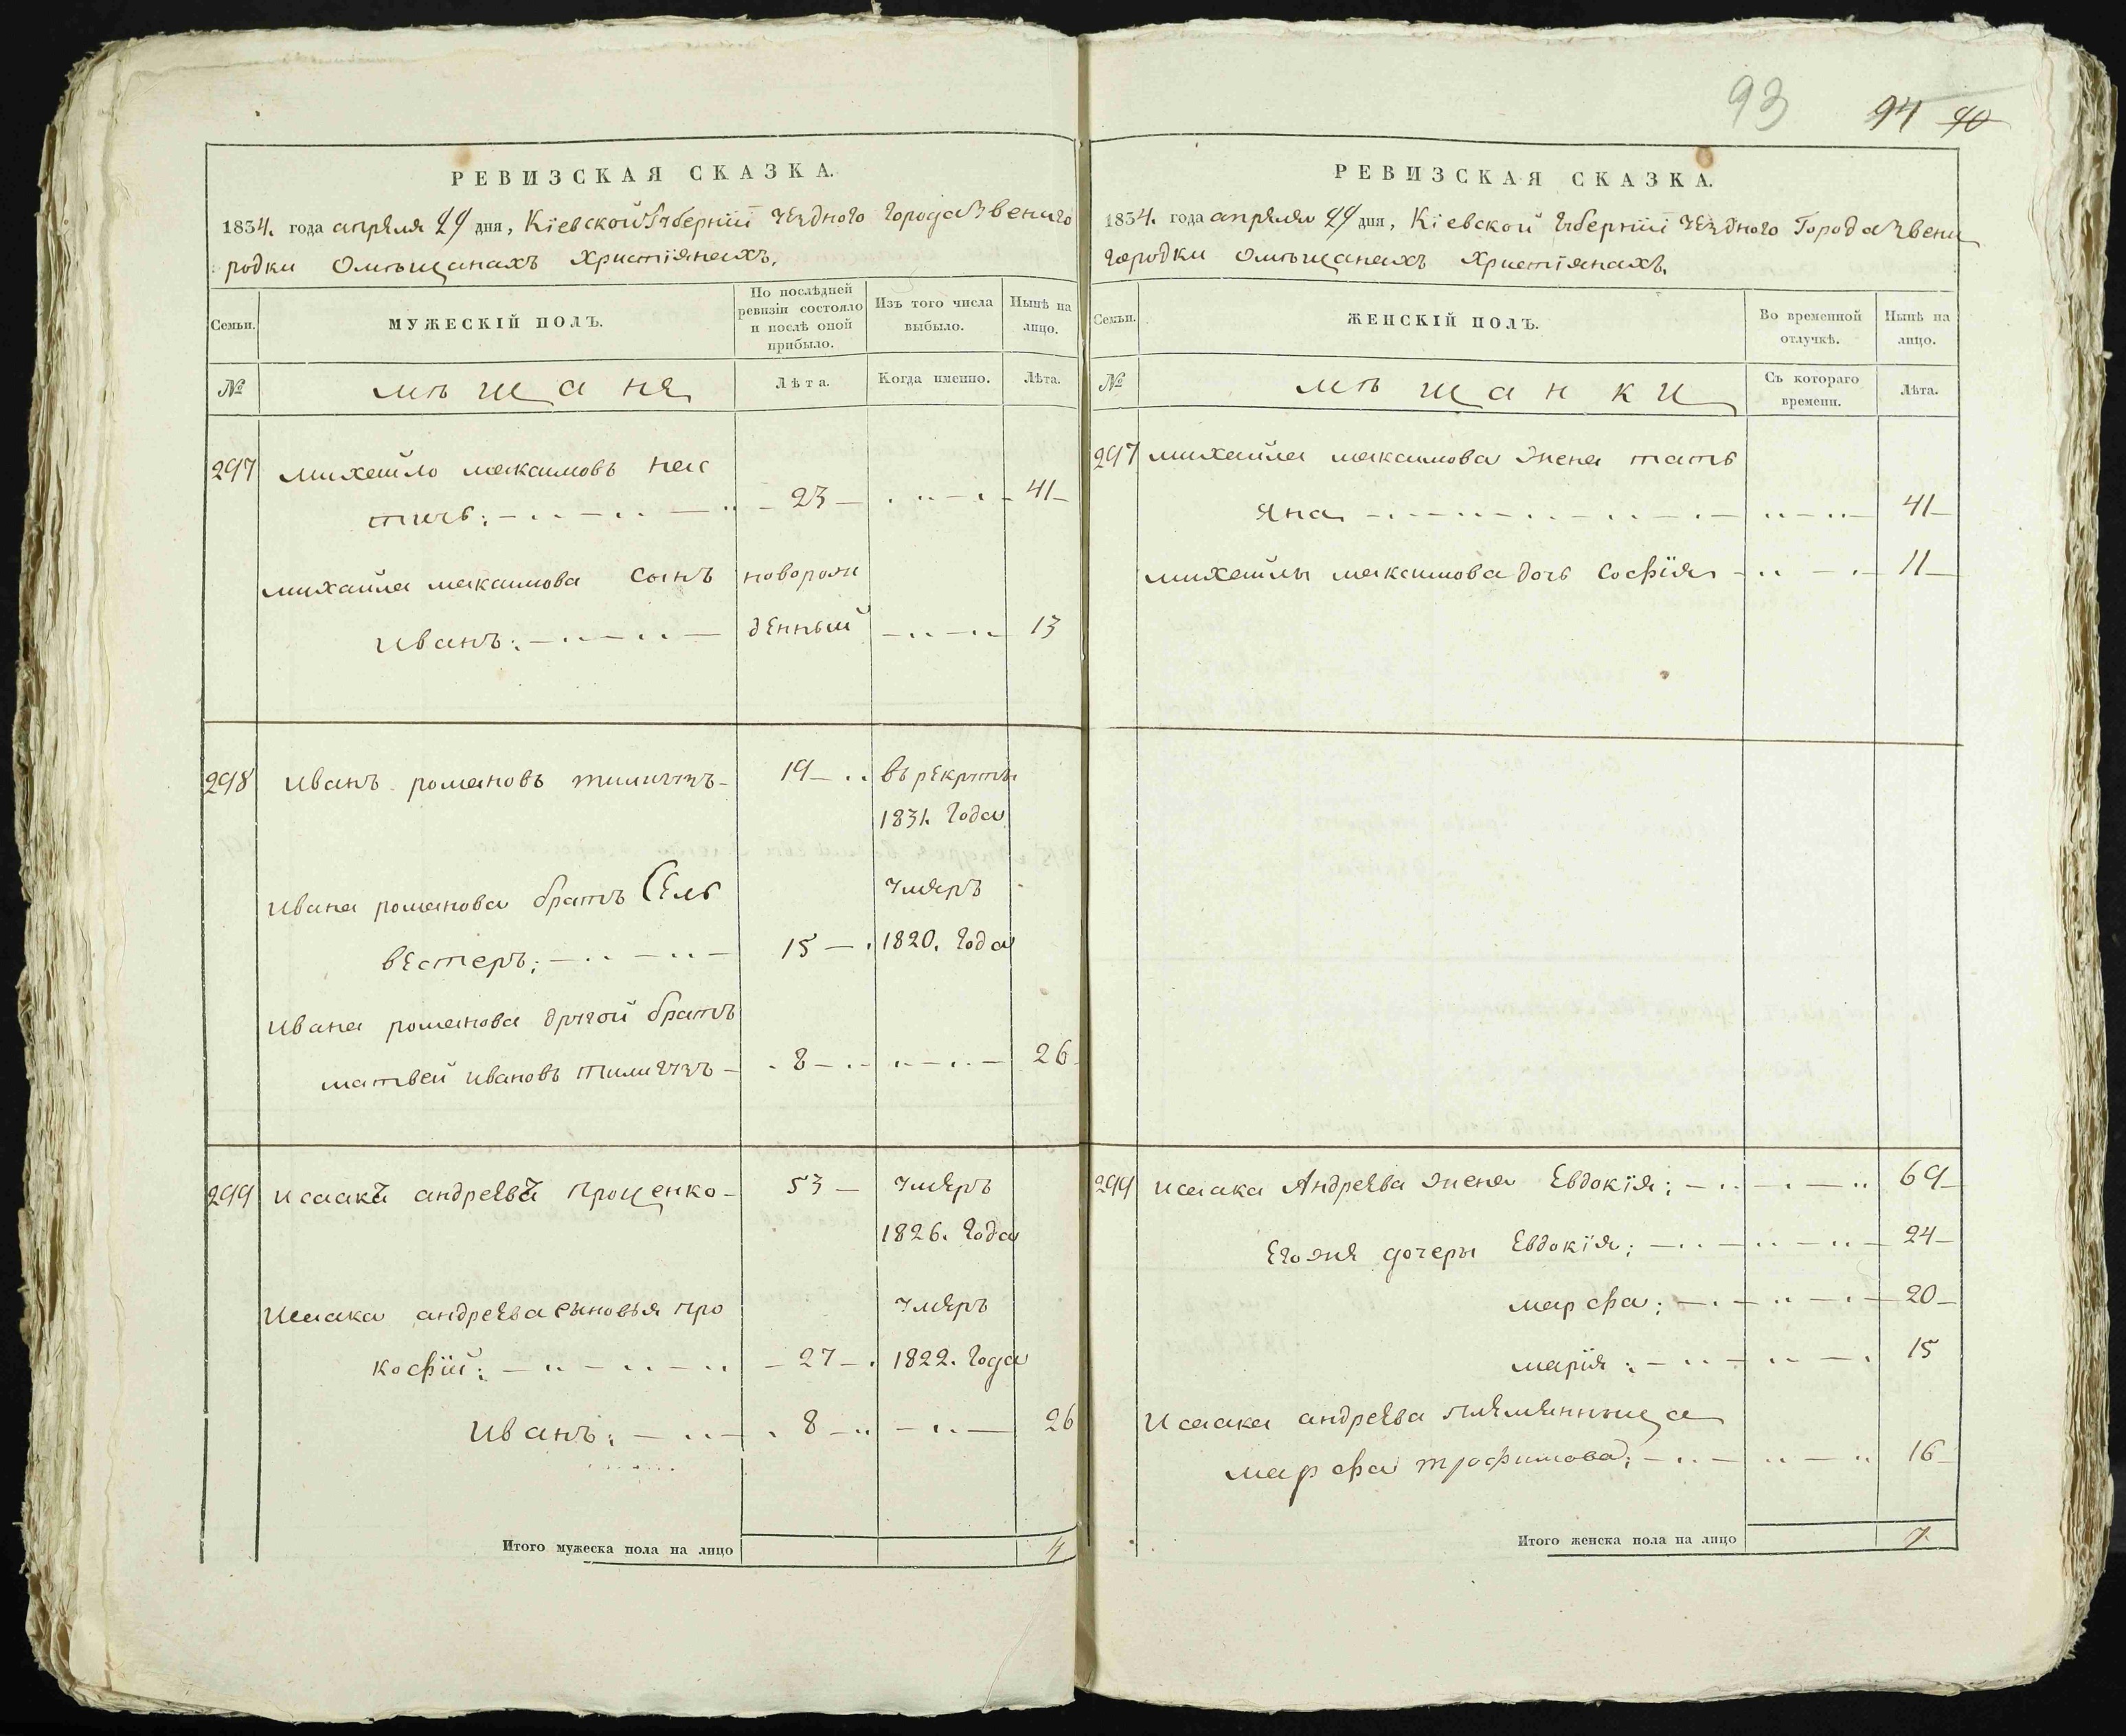 93 94 40
РЕВИЗСКАЯ СКАЗКА.
1834. года апреля 29 дня, Кіевской Губерніи Уезднаго Города Звениго
родки Омѣщанахъ Христіянахъ.
Семьи. МУЖЕСКІЙ ПОЛЪ. По послѣдней ревизіи состояло и послѣ оной прибыло. Изъ того числа выбыло. Нынѣ на лицо.
№ мѣщаня Лѣта. Когда именно. Лѣта.
297 михайло максимовъ
23 41
михайла максимова сынъ новорож
иванъ: денный 13
298 иванъ романовъ 19 въ рекруты
1831. года
ивана романова братъ Сель умеръ
вестеръ; 15 1820. года
ивана романова другой братъ
матвей ивановъ 8 26
299 исаакий андреевъ проценко 53 умеръ
1826. года
исаака андреева сыновья про умеръ
кофїй: 27 1822. года
иванъ: 8 26
Итого мужеска пола на лицо 4
РЕВИЗСКАЯ СКАЗКА.
1834. года апреля 29 дня, Кіевской Губерніи Уезднаго Города Звени
городки Омѣщанахъ Христіянахъ.
Семьи. ЖЕНСКІЙ ПОЛЪ. Во временной отлучкѣ. Нынѣ на лицо.
№ мѣщанки Съ котораго времени. Лѣта.
297 михайла максимова жена тать
яна 41
михайлы максимова дочь софїя 11
299 исаака Андреева жена Евдокїя: 69
Егожя дочеры Евдокїя; 24
марфа; 20
марїя: 15
исаака андреева племянныца
марфа трофимова; 16
Итого женска пола на лицо 7